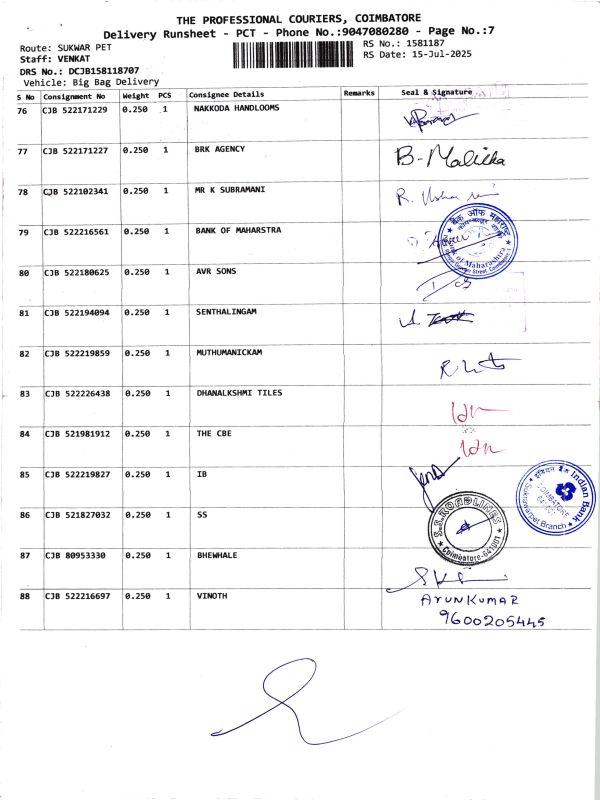 THE PROFESSIONAL COURIERS, COIMBATORE
Delivery Runsheet - PCT - Phone No.:9047080280 - Page No.:7
Route: SUKWAR PET
RS No.: 1581187
Staff: VENKAT
RS Date: 15-Jul-2025
DRS No.: DCJB158118707
Vehicle: Big Bag Delivery
S No Consignment No Weight PCS Consignee Details Remarks Seal & Signature
76 CJB 522171229 0.250 1 NAKKODA HANDLOOMS
77 CJB 522171227 0.250 1 BRK AGENCY B-Malicka
78 CJB 522102341 0.250 1 MR K SUBRAMANI R.
79 CJB 522216561 0.250 1 BANK OF MAHARSTRA
बैंक ऑफ महाराष्ट्र
of Maharashtra
80 CJB 522180625 0.250 1 AVR SONS
81 CJB 522194094 0.250 1 SENTHALINGAM
82 CJB 522219859 0.250 1 MUTHUMANICKAM
83 CJB 522226438 0.250 1 DHANALKSHMI TILES
84 CJB 521981912 0.250 1 THE CBE
85 CJB 522219827 0.250 1 IB
इंडियन बैंक Indian Bank
COIMBATORE
641001
Sukrawarpet Branch
86 CJB 521827032 0.250 1 SS
S.S.ROADLINES
Coimbatore-641001
87 CJB 80953330 0.250 1 BHEWHALE
88 CJB 522216697 0.250 1 VINOTH ArunKumar
9600205445